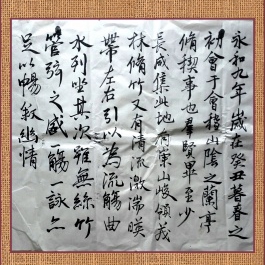 永和九年歲在癸丑暮春之
初會于會稽山陰之蘭亭
脩稧事也羣賢畢至少
長咸集此地有崇山峻領茂
林脩竹又有清流激湍暎
帶左右引以為流觴曲
水列坐其次雖無絲竹
管弦之盛一觴一詠亦
足以暢敘幽情